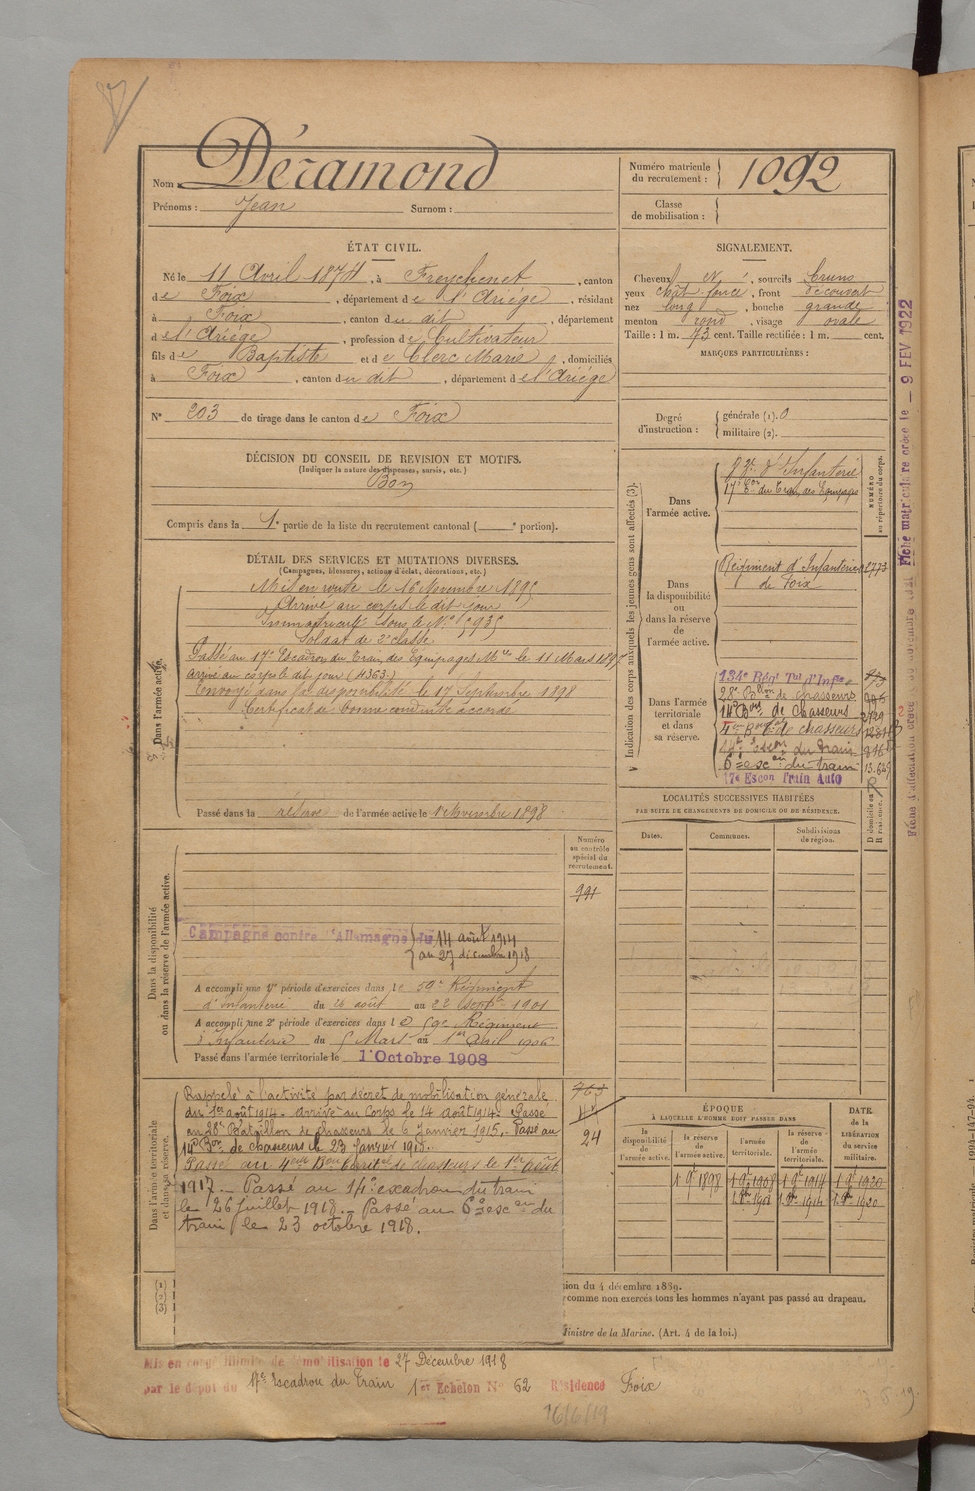 Nom : Déramond
Prénoms : Jean Surnom :
Numéro matricule du recrutement : 1092
Classe de mobilisation :
ÉTAT CIVIL.
Né le 11 Avril 1874, à Freychenet, canton
de Foix, département de l'Ariége, résidant
à Foix, canton du dit, département
de l'Ariége, profession de Cultivateur
fils de Baptiste et de Clerc Marie, domiciliés
à Foix, canton du dit, département de l'Ariége
N° 203 de tirage dans le canton de Foix
SIGNALEMENT.
Cheveux N, sourcils bruns
yeux chât. foncé, front découvert
nez long, bouche grande
menton rond, visage ovale
Taille : 1 m. 73 cent. Taille rectifiée : 1 m. cent.
MARQUES PARTICULIÈRES :
Degré d'instruction : générale (1). 0
militaire (2).
DÉCISION DU CONSEIL DE REVISION ET MOTIFS.
(Indiquer la nature des dispenses, sursis, etc.)
Bon
Compris dans la 1e partie de la liste du recrutement cantonal ( e portion).
DÉTAIL DES SERVICES ET MUTATIONS DIVERSES.
(Campagnes, blessures, actions d'éclat, décorations, etc.)
Dans l'armée active.
Mis en route le 16 Novembre 1895
Arrivé au corps le dit jour
Immatriculé sous le N° 5935
Soldat de 2e classe.
Passé au 17e Escadron du Train des Equipages Mres le 11 Mars 1897
arrivé au corps le dit jour (4363)
Envoyé dans la disponibilité le 17 Septembre 1898
Certificat de bonne conduite accordé
Passé dans la réserve de l'armée active le 1er Novembre 1898
Dans la disponibilité ou dans la réserve de l'armée active.
Numéro au contrôle spécial du recrutement.
991
Campagne contre l'Allemagne du 14 août 1914
au 27 décembre 1918
A accompli une 1re période d'exercices dans le 59e Régiment
d'Infanterie du 26 août au 22 Septbre 1901
A accompli une 2e période d'exercices dans le 59e Régiment
d'Infanterie du 5 Mars au 1er Avril 1906
Passé dans l'armée territoriale le 1er Octobre 1908
Dans l'armée territoriale et dans sa réserve.
Rappelé à l'activité par décret de mobilisation générale
du 1er août 1914. Arrivé au Corps le 14 août 1914. Passé
au 28e Bataillon de chasseurs le 6 Janvier 1915. Passé au
14e Bon de chasseurs le 23 Janvier 1915.
Passé au 4eme Bon territ. de chasseurs le 1er août
1917. Passé au 14e escadron du train
le 26 juillet 1918. Passé au 6e escon du
train le 23 octobre 1918.
763
24
(1)
(2)
(3)
Indication des corps auxquels les jeunes gens sont affectés (3).
NUMÉRO au répertoire du corps.
Dans l'armée active.
d'Infanterie
17e Eon du Train des Equipages
Dans la disponibilité ou dans la réserve de l'armée active.
Régiment d'Infanterie 2773
de Foix
Dans l'armée territoriale et dans sa réserve.
134e Régt Tal d'Infie
28e Bon de chasseurs
14e Bon de chasseurs
4em Bon de chasseurs
14e Escon du train
6e escon du train 13.629
17e Escon Train Auto
LOCALITÉS SUCCESSIVES HABITÉES
PAR SUITE DE CHANGEMENTS DE DOMICILE OU DE RÉSIDENCE.
Dates. Communes. Subdivisions de région.
D domicile ou R résidence.
ÉPOQUE
À LAQUELLE L'HOMME DOIT PASSER DANS
la disponibilité de l'armée active. la réserve de l'armée active. l'armée territoriale. la réserve de l'armée territoriale.
DATE de la LIBÉRATION du service militaire.
1 9bre 1898 1 9bre 1908 1 9bre 1914 1 9bre 1920
ion du 4 décembre 1889.
comme non exercés tous les hommes n'ayant pas passé au drapeau.
Ministre de la Marine. (Art. 4 de la loi.)
Fiche matriculaire créée le — 9 FEV 1922
Mis en congé illimité de démobilisation le 27 Décembre 1918
par le dépôt du 17e Escadron du Train 1er Échelon N° 62 Résidence Foix
16/6/19